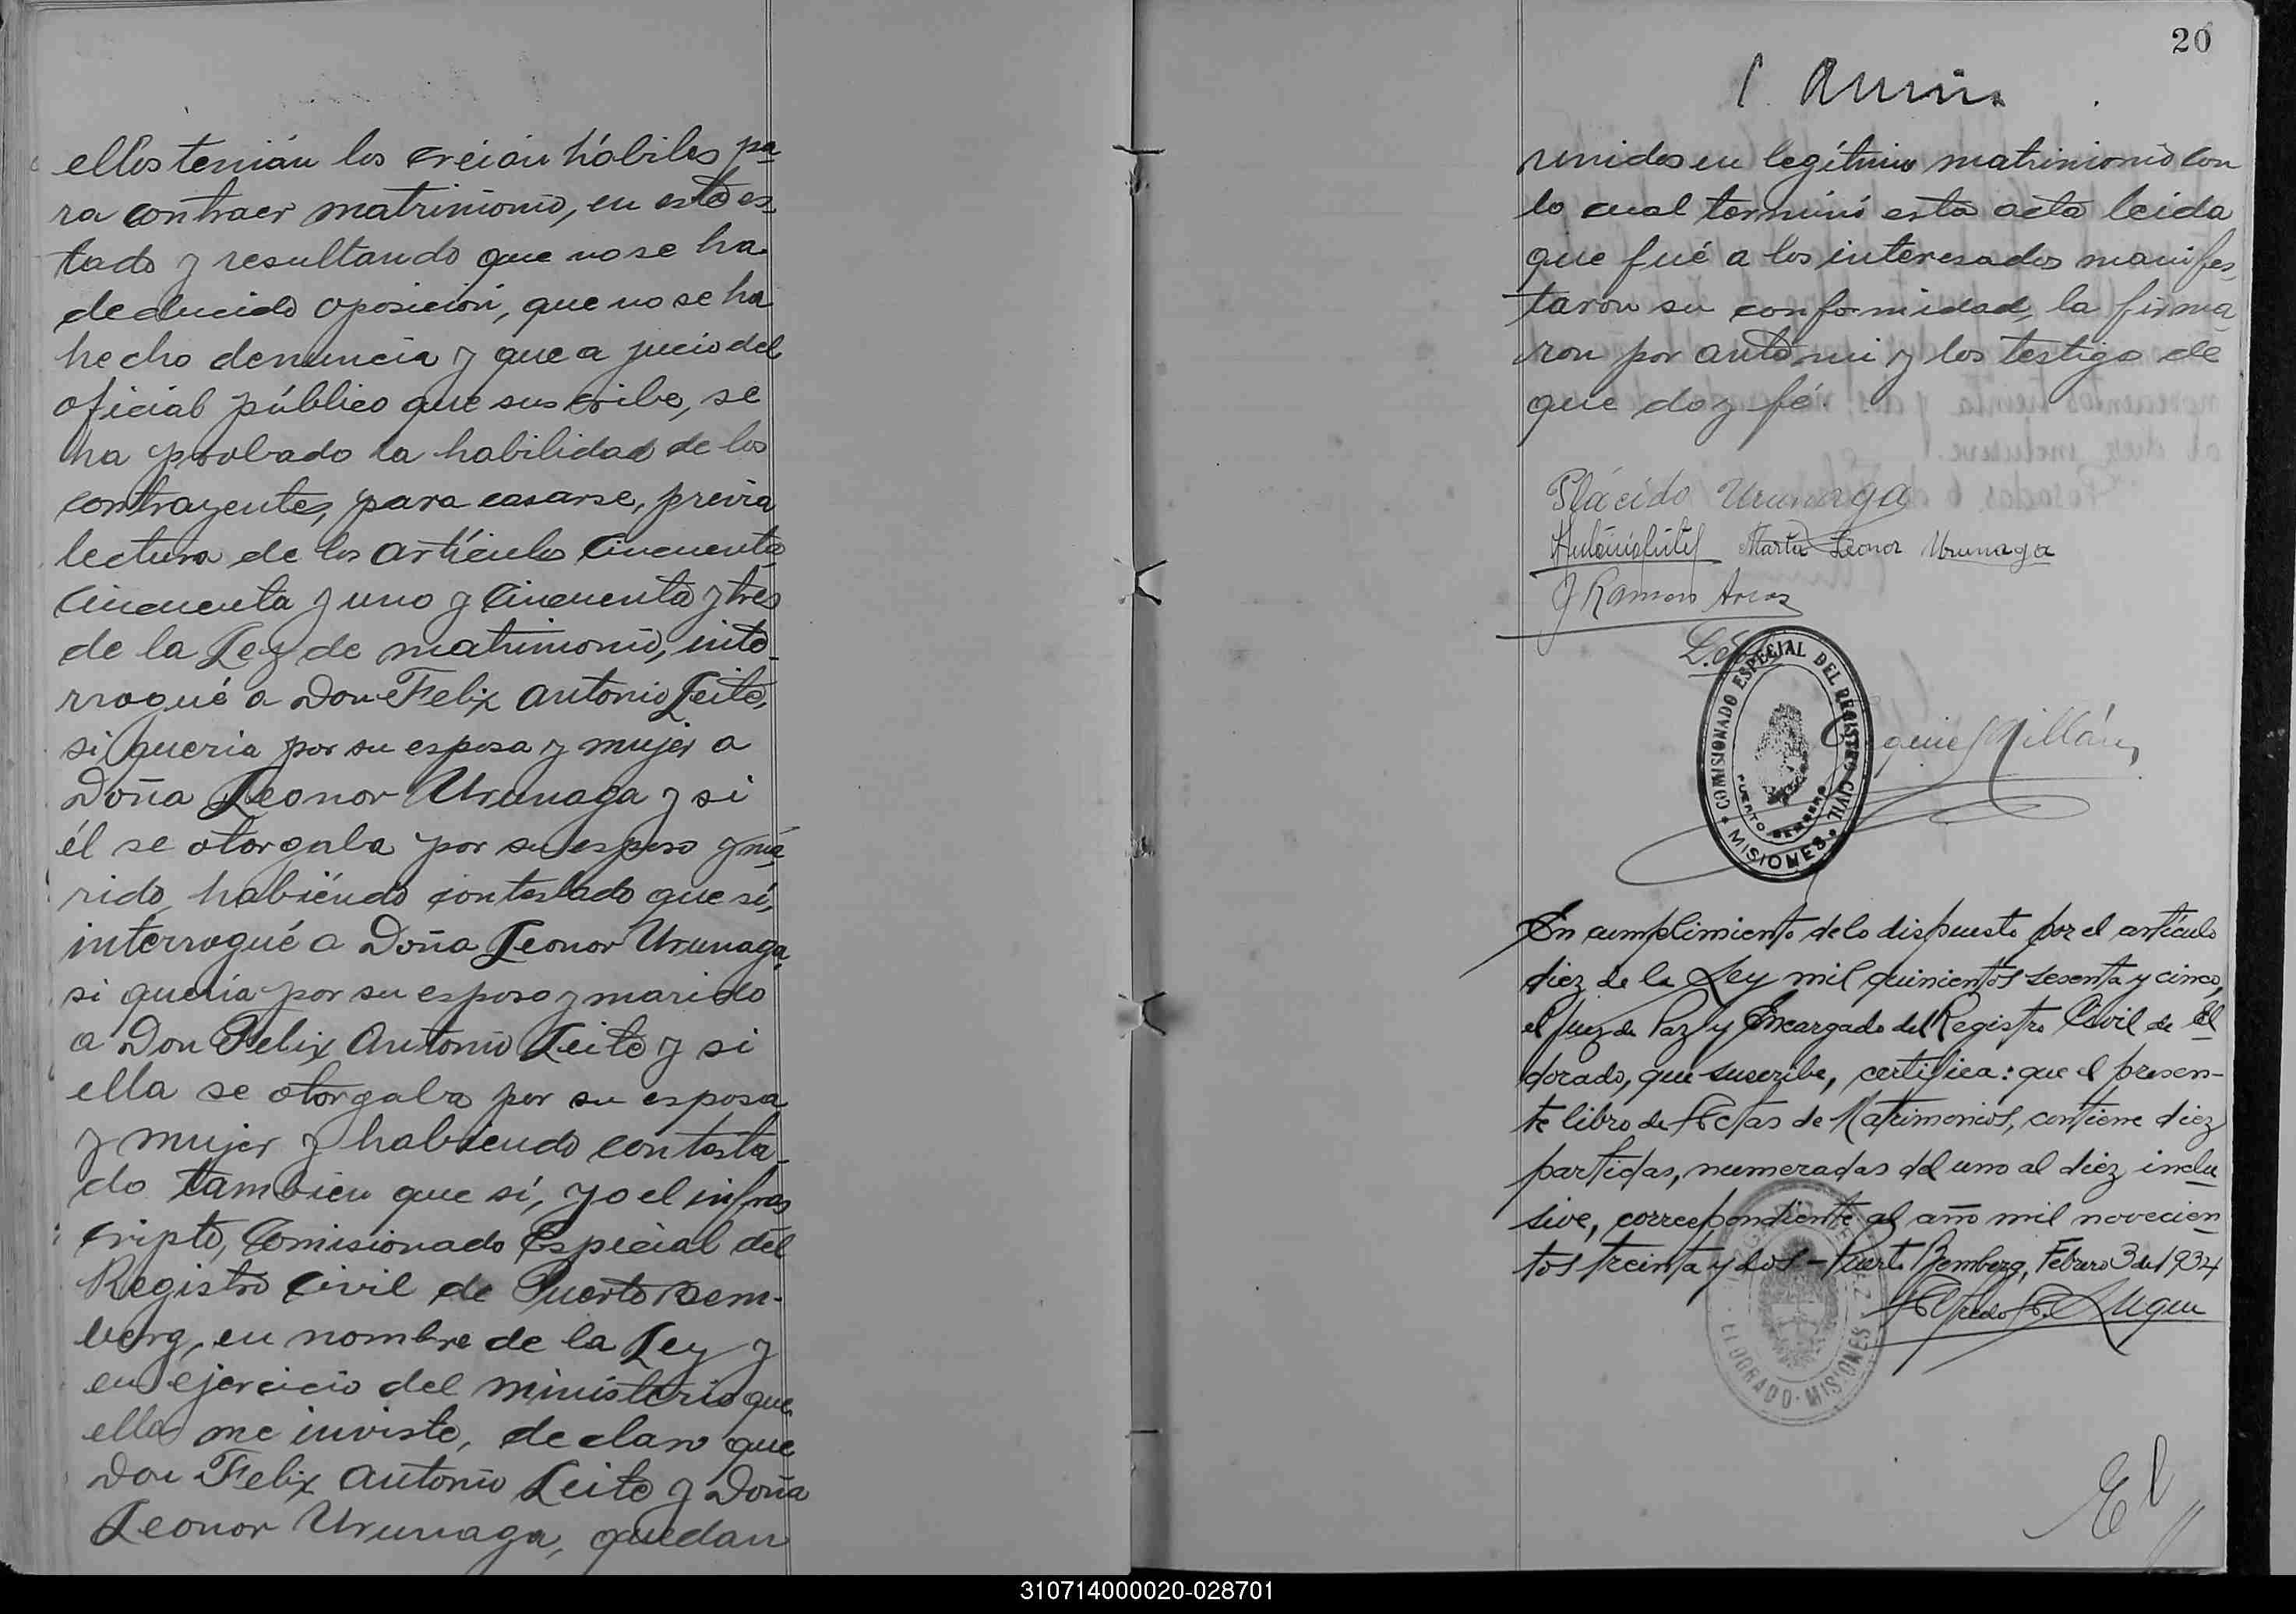 ellos tenián los creían hábiles pa
ra contraer matrimonio, en este es-
tado y resultando que no se ha
deducido oposición, que no se ha
hecho denuncia y que a jucio del
oficial público que suscribe, se
ha probado la habilidad de los
contrayentes, para casarse, previa
lectura de los artículos Cincuenta,
Cincuenta y uno y Cincuenta y tres
de la Ley de matrimonio, inte-
rrogué a Don Felix Antonio Leite,
si queria por su esposa y mujer a
Doña Leonor Urunaga y si
él se otorgaba por su esposo y ma
rido, habiéndo contestado que sí,
interrogué a Doña Leonor Urunaga,
si quería por su esposo y marido
a Don Felix Antonio Leite y si
ella se otorgaba por su esposa
y mujer y habiendo contesta-
do tambien que sí, yo el infras
cripto, Comisionado Especial del
Registro Civil de Puerto Bem-
berg, en nombre de la Ley y
en ejercicio del ministerio que
ella me inviste, declaro que
Don Felix Antonio Leite y Doña
Leonor Urunaga, quedan
20
unidos en legítimo matrimonio con
lo cual terminó esta acta leida
que fué a los interesados manifes-
taron su conformidad, la firma
ron por ante mi y los testigo de
que doy fé.
Plácido Urunaga
Marta Leonor Urunaga
J Ramon
COMISIONADO ESPECIAL DEL REGISTRO CIVIL
PUERTO BEMBERG
MISIONES
Millán
En cumplimiento de lo dispuesto por el artículo
diez de la Ley mil quinientos sesenta y cinco,
el Juez de Paz y Encargado del Registro Civil de El
dorado, que suscribe, certifica: que el presen-
te libro de Actas de Matrimonios, contiene diez
partidas, numeradas del uno al diez inclu
sive, correspondiente al año mil novecien
tos treinta y dos - Puerto Bemberg, Febrero 3 de 1934
Alfredo
ELDORADO - MISIONES
El
310714000020-028701